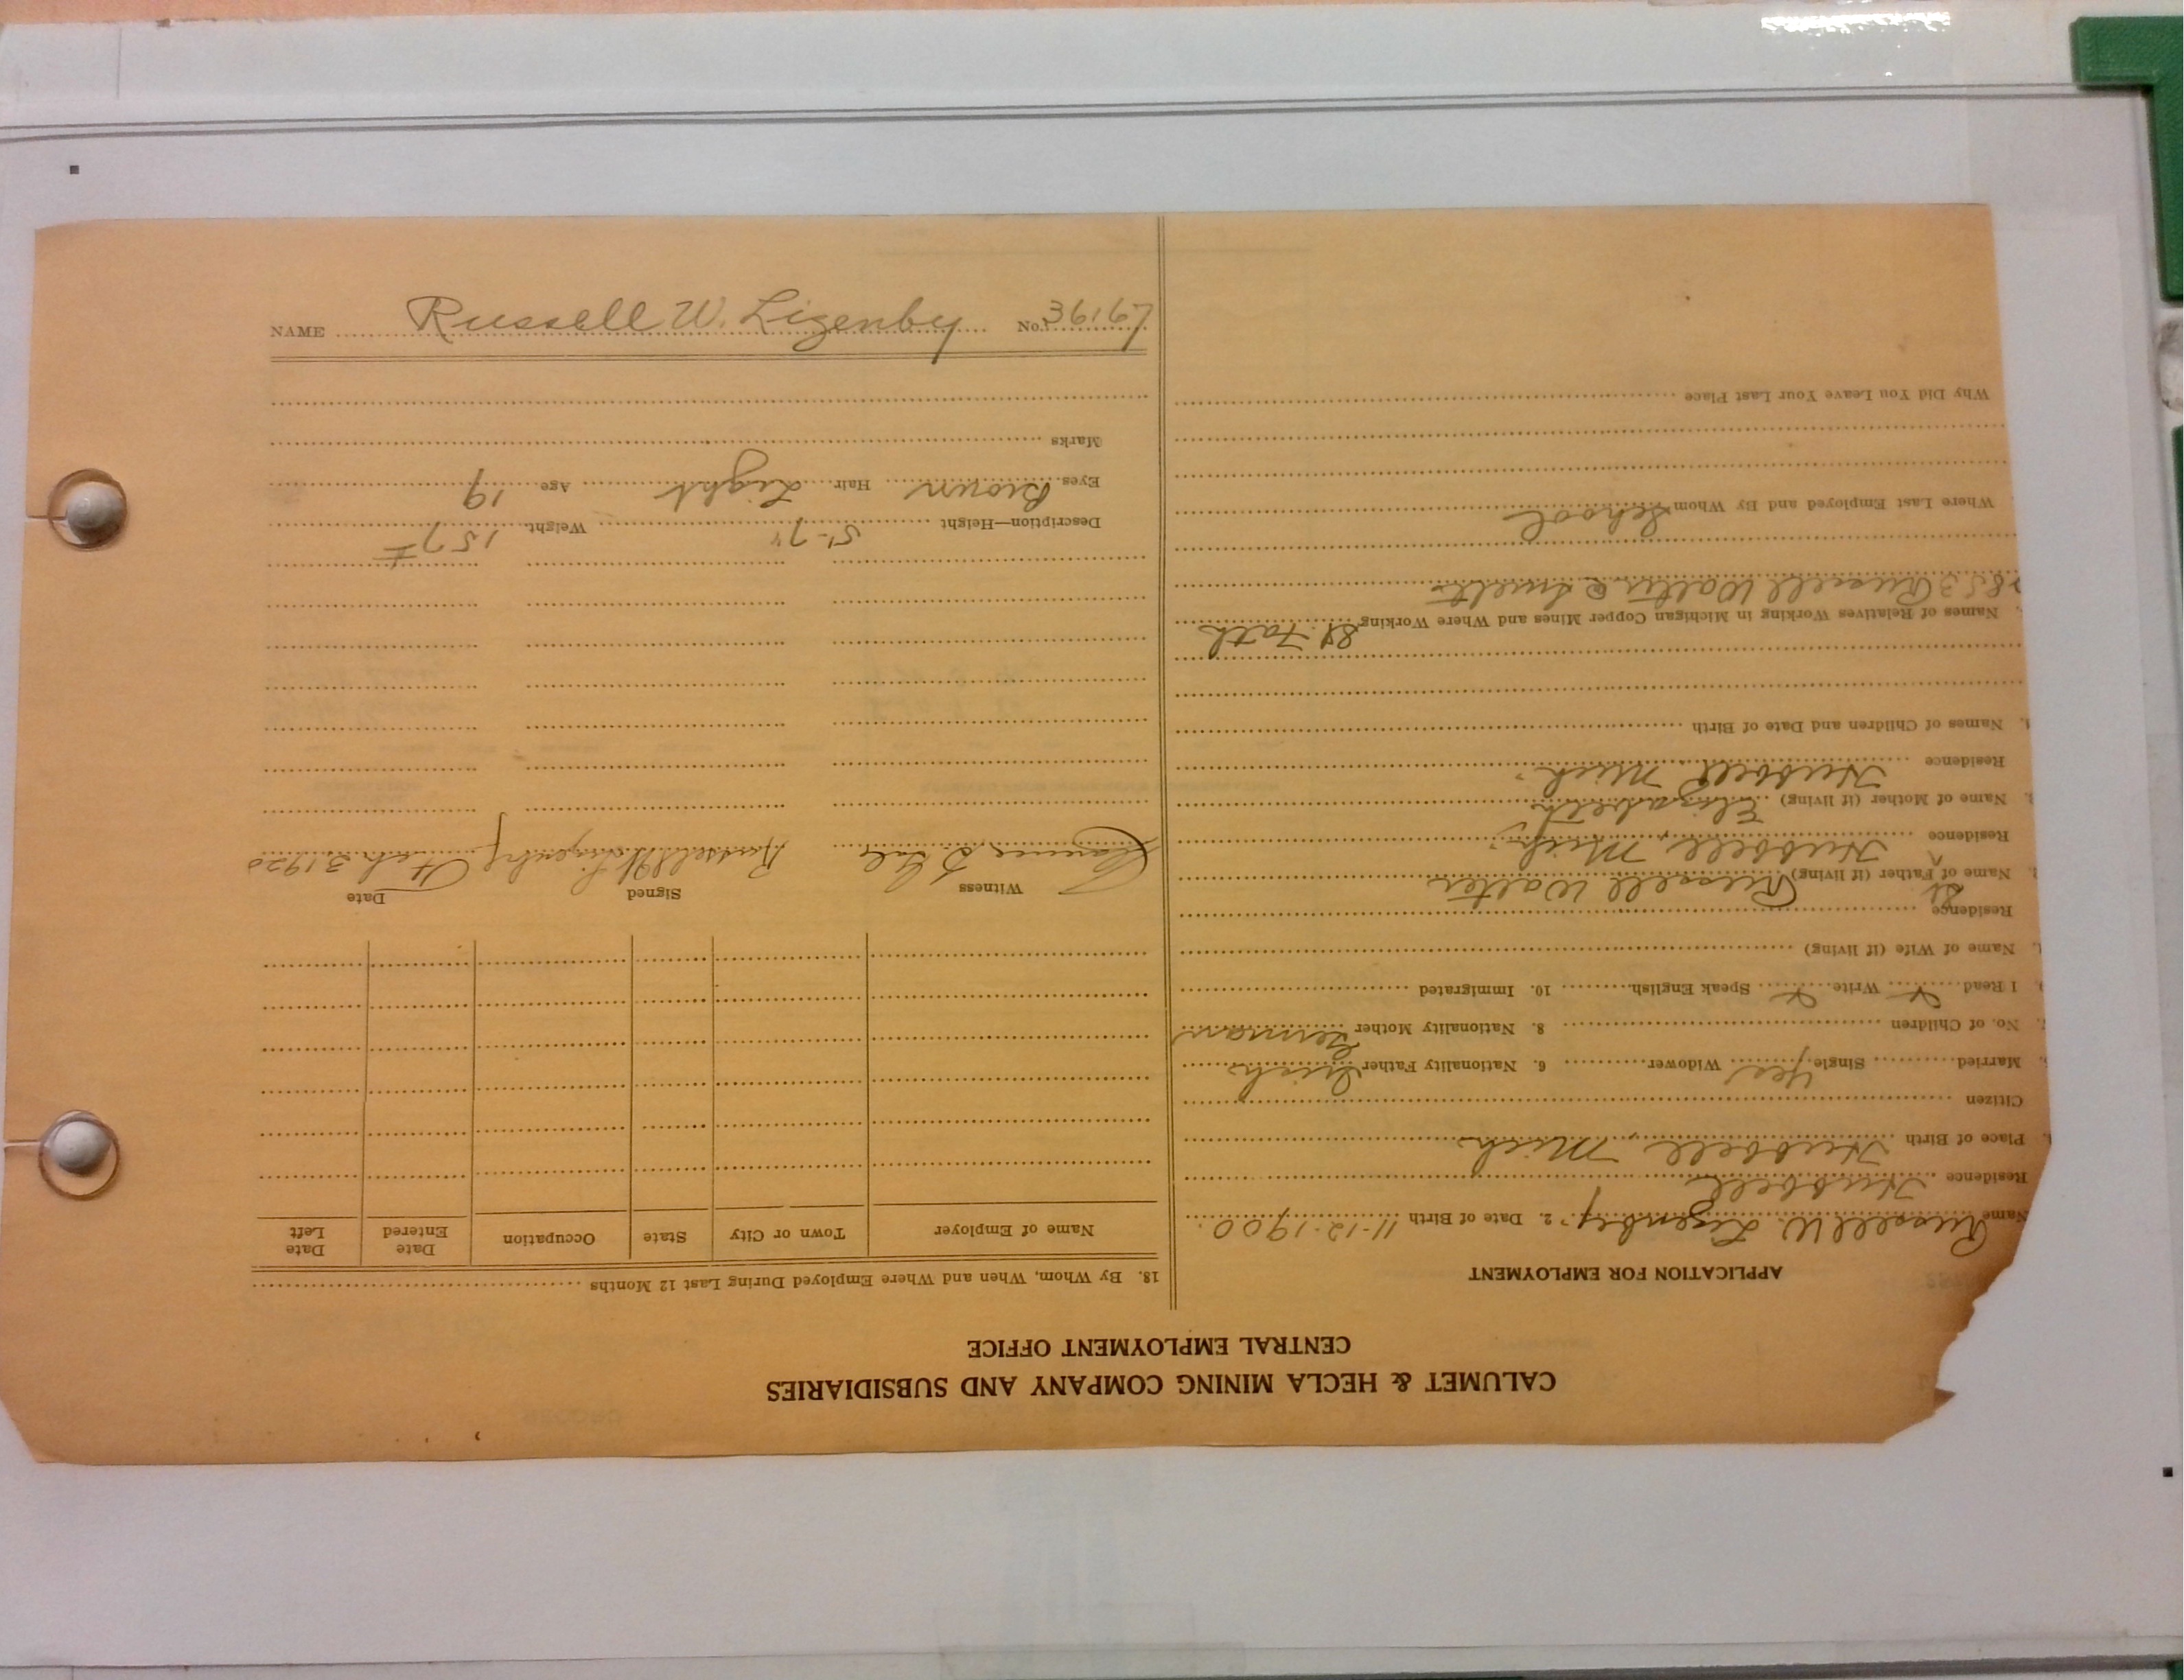 CALUMET & HECLA MINING COMPANY AND SUBSIDIARIES
CENTRAL EMPLOYMENT OFFICE
APPLICATION FOR EMPLOYMENT
Name Russell W. Lizenby. 2. Date of Birth 11-12-1900.
Residence Hubbell
Place of Birth Hubbell, Mich
Citizen
Married Single Yes Widower 6. Nationality Father
No. of Children 8. Nationality Mother German
I Read Write Speak English 10. Immigrated
Name of Wife (if living)
Residence
St
Name of Father (if living) Russell Walter
Residence Hubbell, Mich.
Name of Mother (if living) Elizabeth
Residence Hubbell Mich.
Names of Children and Date of Birth
Names of Relatives Working in Michigan Copper Mines and Where Working St. Fath
Russell Walter
Where Last Employed and By Whom School
Why Did You Leave Your Last Place
18. By Whom, When and Where Employed During Last 12 Months
Name of Employer Town or City State Occupation Date Entered Date Left
Witness Signed Date
Clarence Russell W. Lizenby Feb 3 1920
Description—Height 5'-7" Weight 157
Eyes Brown Hair Light Age 19
Marks
NAME Russell W. Lizenby No. 36167